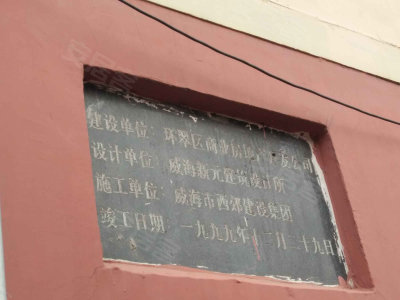 建设单位：环翠区商业房地产开发公司
设计单位：威海新元建筑设计所
施工单位：威海市西郊建设集团
竣工日期：一九九九年十二月二十九日